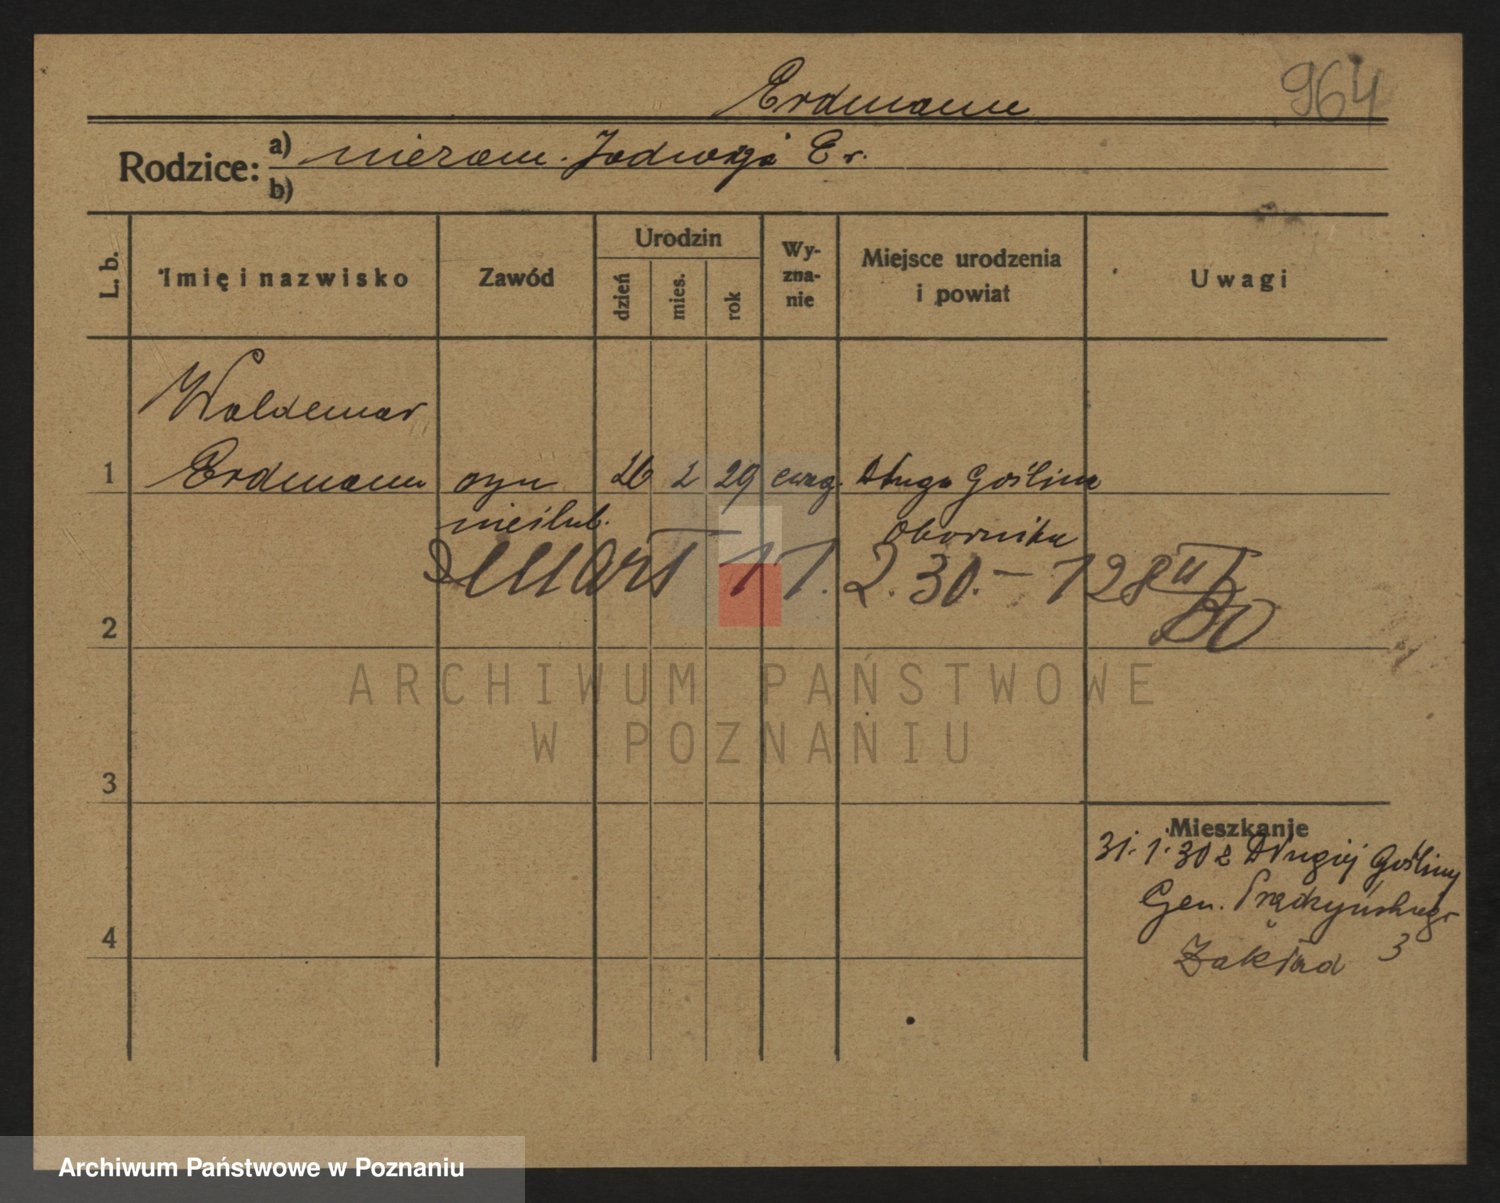 Erdmann
964
Rodzice: a) niezam. Jadwiga Er.
b)
L. b.
Imię i nazwisko
Zawód
Urodzin
dzień
mies.
rok
Wy-
zna-
nie
Miejsce urodzenia
i powiat
Uwagi
Waldemar
1 Erdmann syn 26 2 29 ewag. Długa Goślina
nieślub. Oborniki
zmarł 11. 2. 30. – 128 II/30
2
ARCHIWUM PAŃSTWOWE
W POZNANIU
3
Mieszkanie
31. 1. 30 z Długiej Gośliny
Gen. Prądzyńskiego
4
Zakład 3
Archiwum Państwowe w Poznaniu